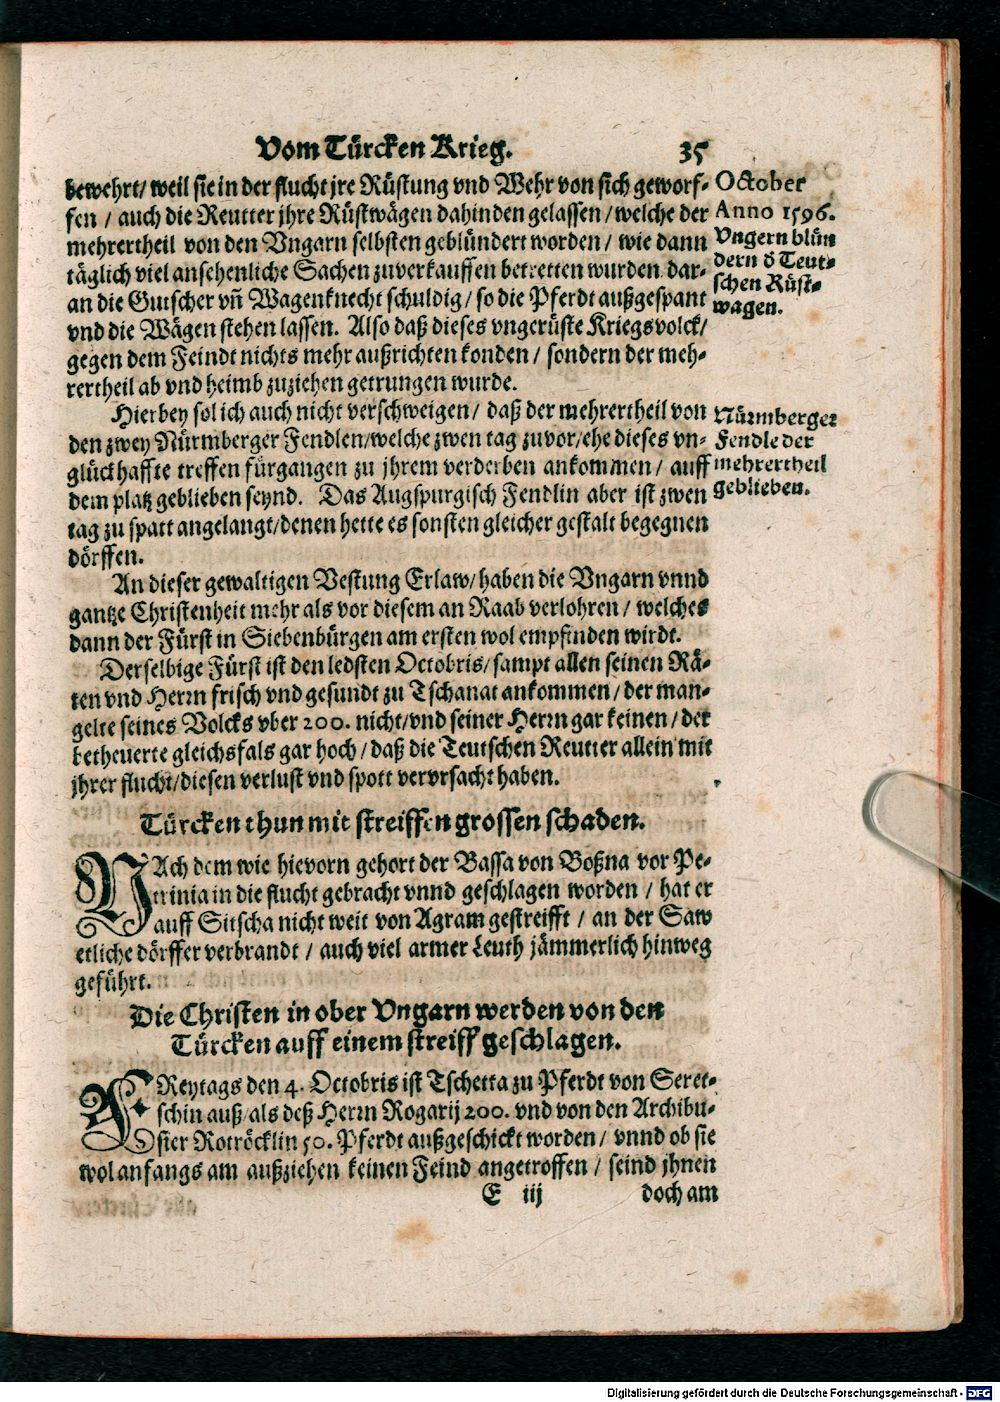 Vom Türcken Krieg. 35
bewehrt/ weil sie in der flucht jre Rüstung vnd Wehr von sich geworf-
fen / auch die Reutter jhre Rüstwägen dahinden gelassen / welche der
mehrertheil von den Vngarn selbsten geblündert worden / wie dann
täglich viel ansehenliche Sachen zuverkauffen betretten wurden dar-
an die Gutscher vñ Wagenknecht schuldig / so die Pferdt außgespant
vnd die Wägen stehen lassen. Also daß dieses vngerüste Kriegsvolck/
gegen dem Feindt nichts mehr außrichten konden / sondern der meh-
rertheil ab vnd heimb zuziehen getrungen wurde.
October
Anno 1596.
Vngern blün
dern d Teut-
schen Rüst-
wagen.
Hierbey sol ich auch nicht verschweigen / daß der mehrertheil von
den zwey Nürmberger Fendlen/welche zwen tag zuvor/ehe dieses vn-
glückhaffte treffen fürgangen zu jhrem verderben ankommen / auff
dem platz geblieben seynd. Das Augspurgisch Fendlin aber ist zwen
tag zu spatt angelangt/denen hette es sonsten gleicher gestalt begegnen
dörffen.
Nürmberger
Fendle der
mehrertheil
geblieben.
An dieser gewaltigen Vestung Erlaw/ haben die Vngarn vnnd
gantze Christenheit mehr als vor diesem an Raab verlohren / welches
dann der Fürst in Siebenbürgen am ersten wol empfinden wirdt.
Derselbige Fürst ist den ledsten Octobris/ sampt allen seinen Rä-
ten vnd Herrn frisch vnd gesundt zu Tschanat ankommen / der man-
gelte seines Volcks vber 200. nicht/ vnd seiner Herrn gar keinen / der
betheuerte gleichsfals gar hoch / daß die Teutschen Reutter allein mit
jhrer flucht/diesen verlust vnd spott vervrsacht haben.
Türcken thun mit streiffen grossen schaden.
NAch dem wie hievorn gehort der Bassa von Boßna vor Pe-
trinia in die flucht gebracht vnnd geschlagen worden / hat er
auff Sitscha nicht weit von Agram gestreifft / an der Saw
etliche dörffer verbrandt / auch viel armer Leuth jämmerlich hinweg
geführt.
Die Christen in ober Vngarn werden von den
Türcken auff einem streiff geschlagen.
FReytags den 4. Octobris ist Tschetta zu Pferdt von Seret-
schin auß/als deß Herrn Rogarij 200. vnd von den Archibu-
sier Rotröcklin 50. Pferdt außgeschickt worden / vnnd ob sie
wol anfangs am außziehen keinen Feind angetroffen / seind jhnen
E iij doch am
Digitalisierung gefördert durch die Deutsche Forschungsgemeinschaft - DFG